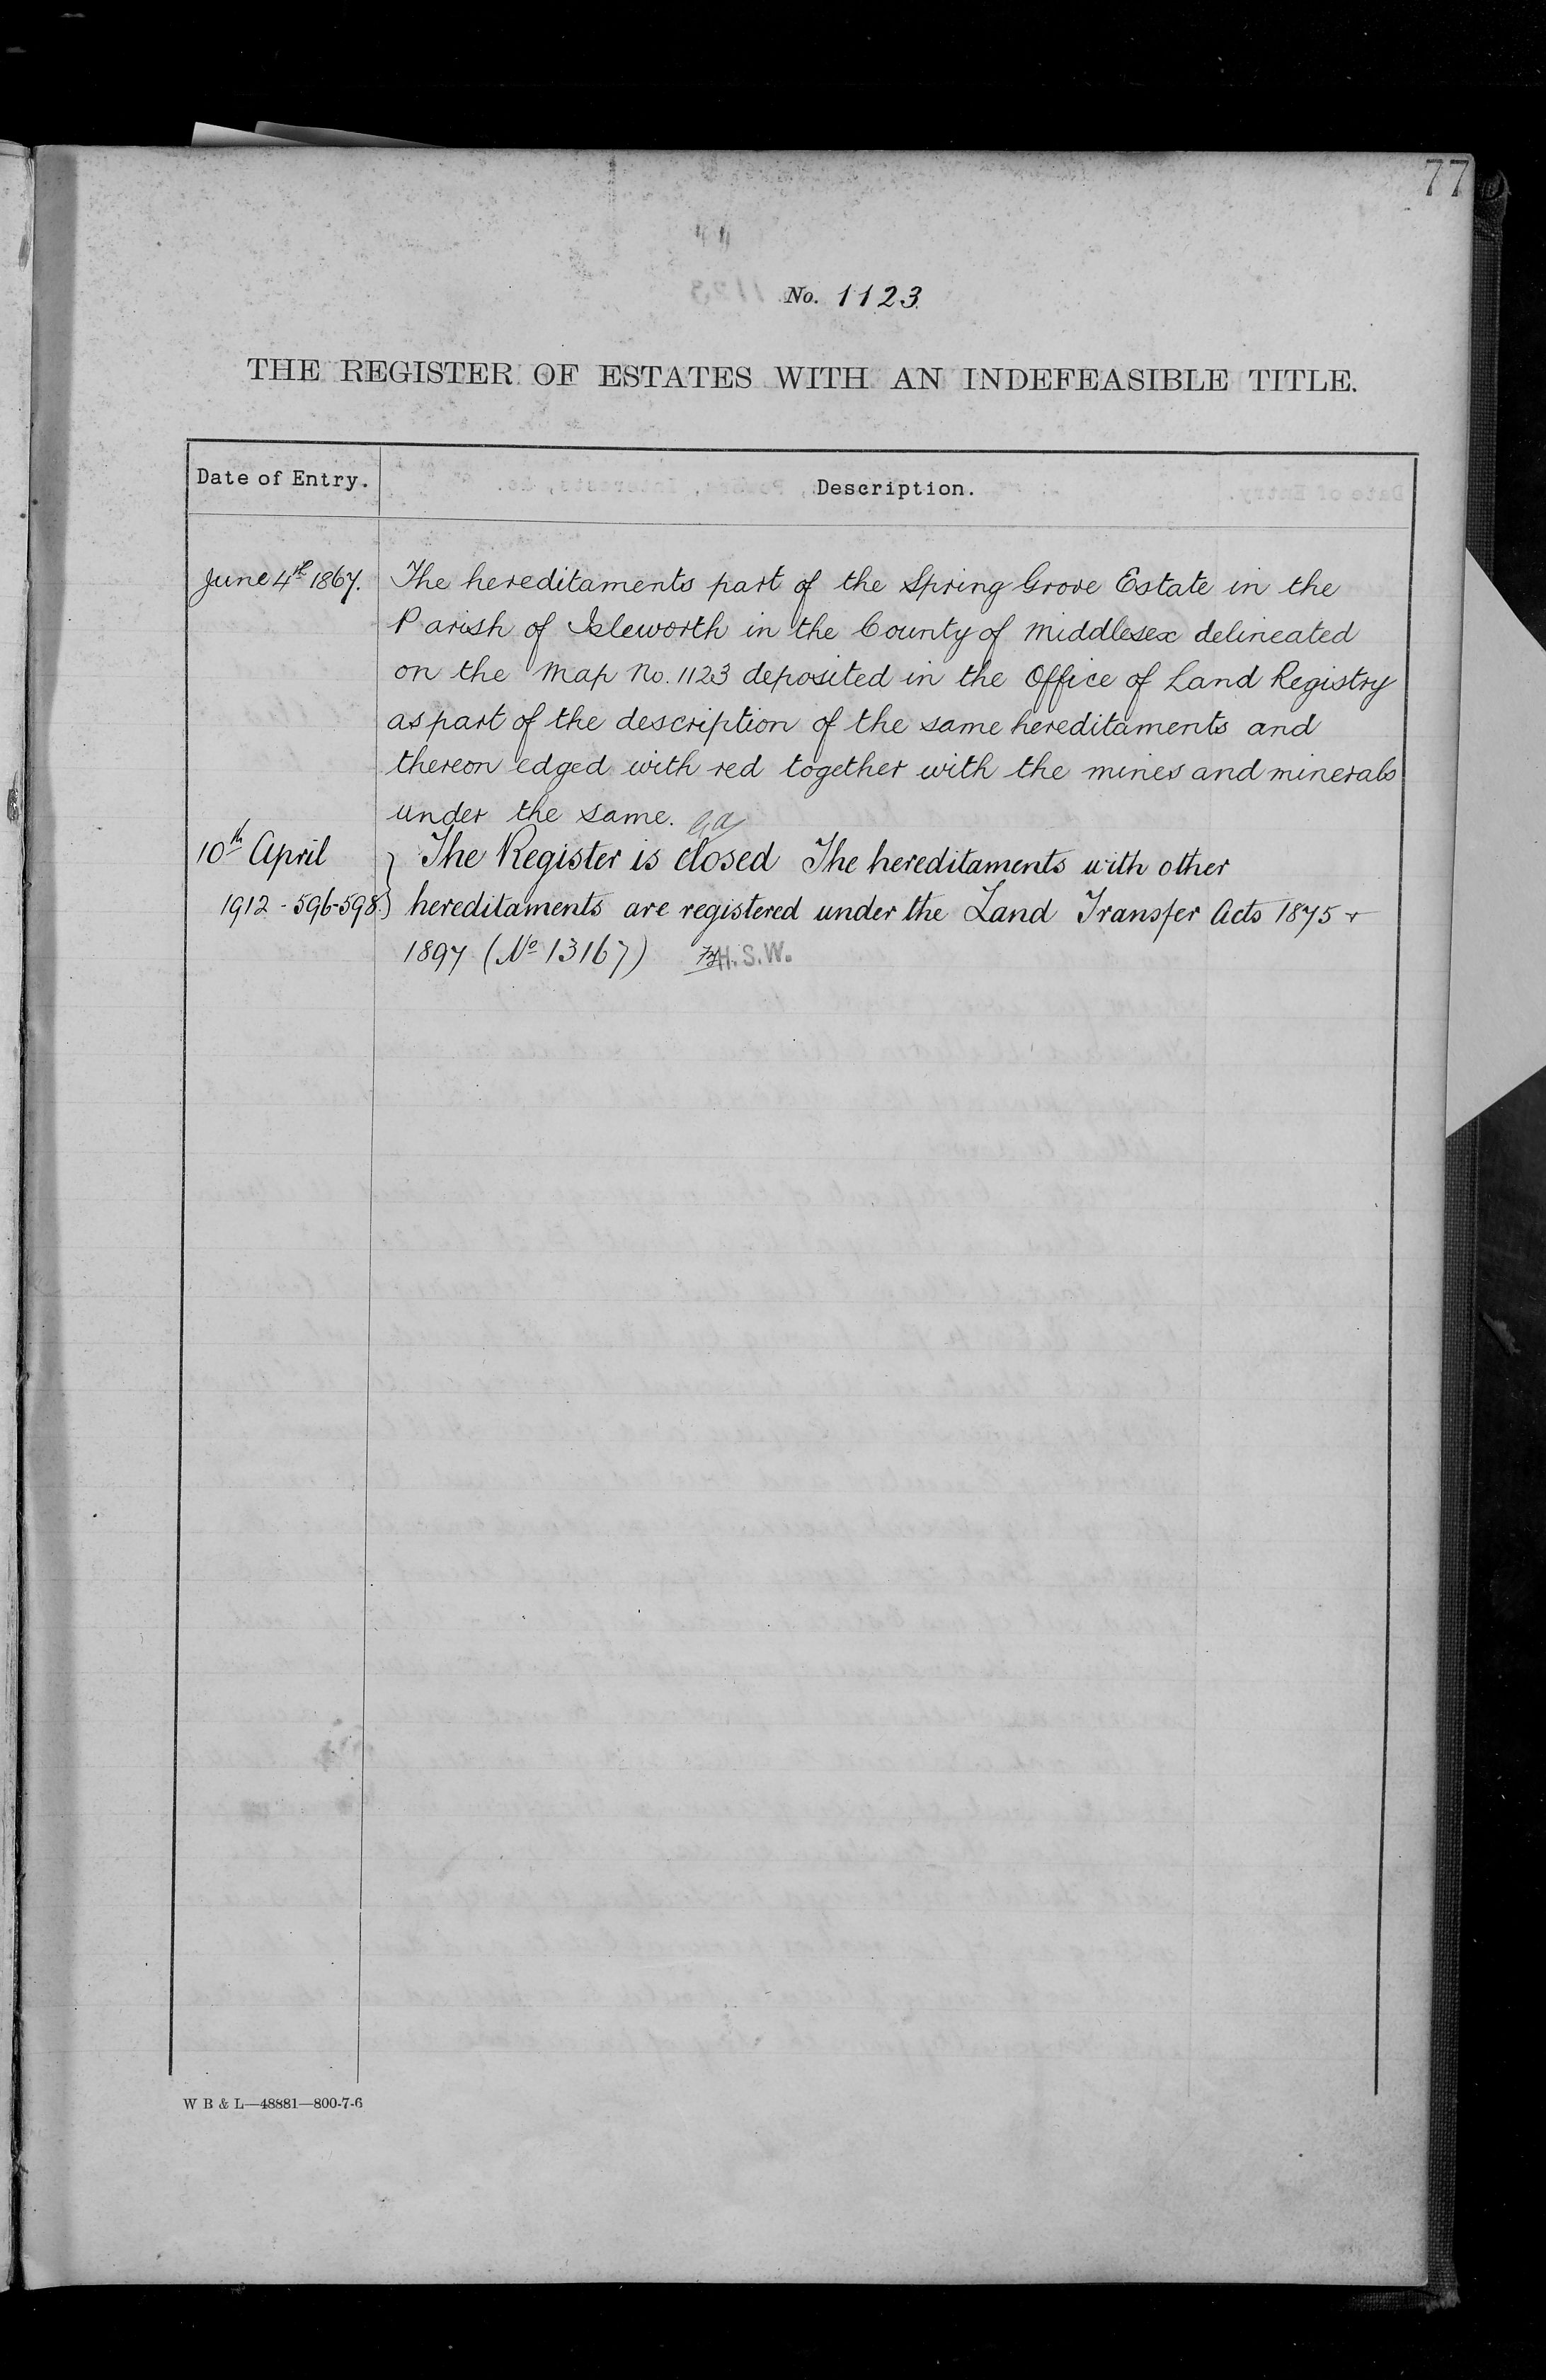 77
No. 1123
THE REGISTER OF ESTATES WITH AN INDEFEASIBLE TITLE.
Date of Entry.
Description.
June 4th 1867.
The hereditaments part of the Spring Grove Estate in the
Parish of Isleworth in the County of Middlesex delineated
on the Map No. 1123 deposited in the Office of Land Registry
as part of the description of the same hereditaments and
thereon edged with red together with the mines and minerals
under the same.
10th April
1912 - 596-598.}
The Register is closed The hereditaments with other
hereditaments are registered under the Land Transfer Acts 1875 +
1897 (No 13167) H.S.W.
W B & L—48881—800-7-6